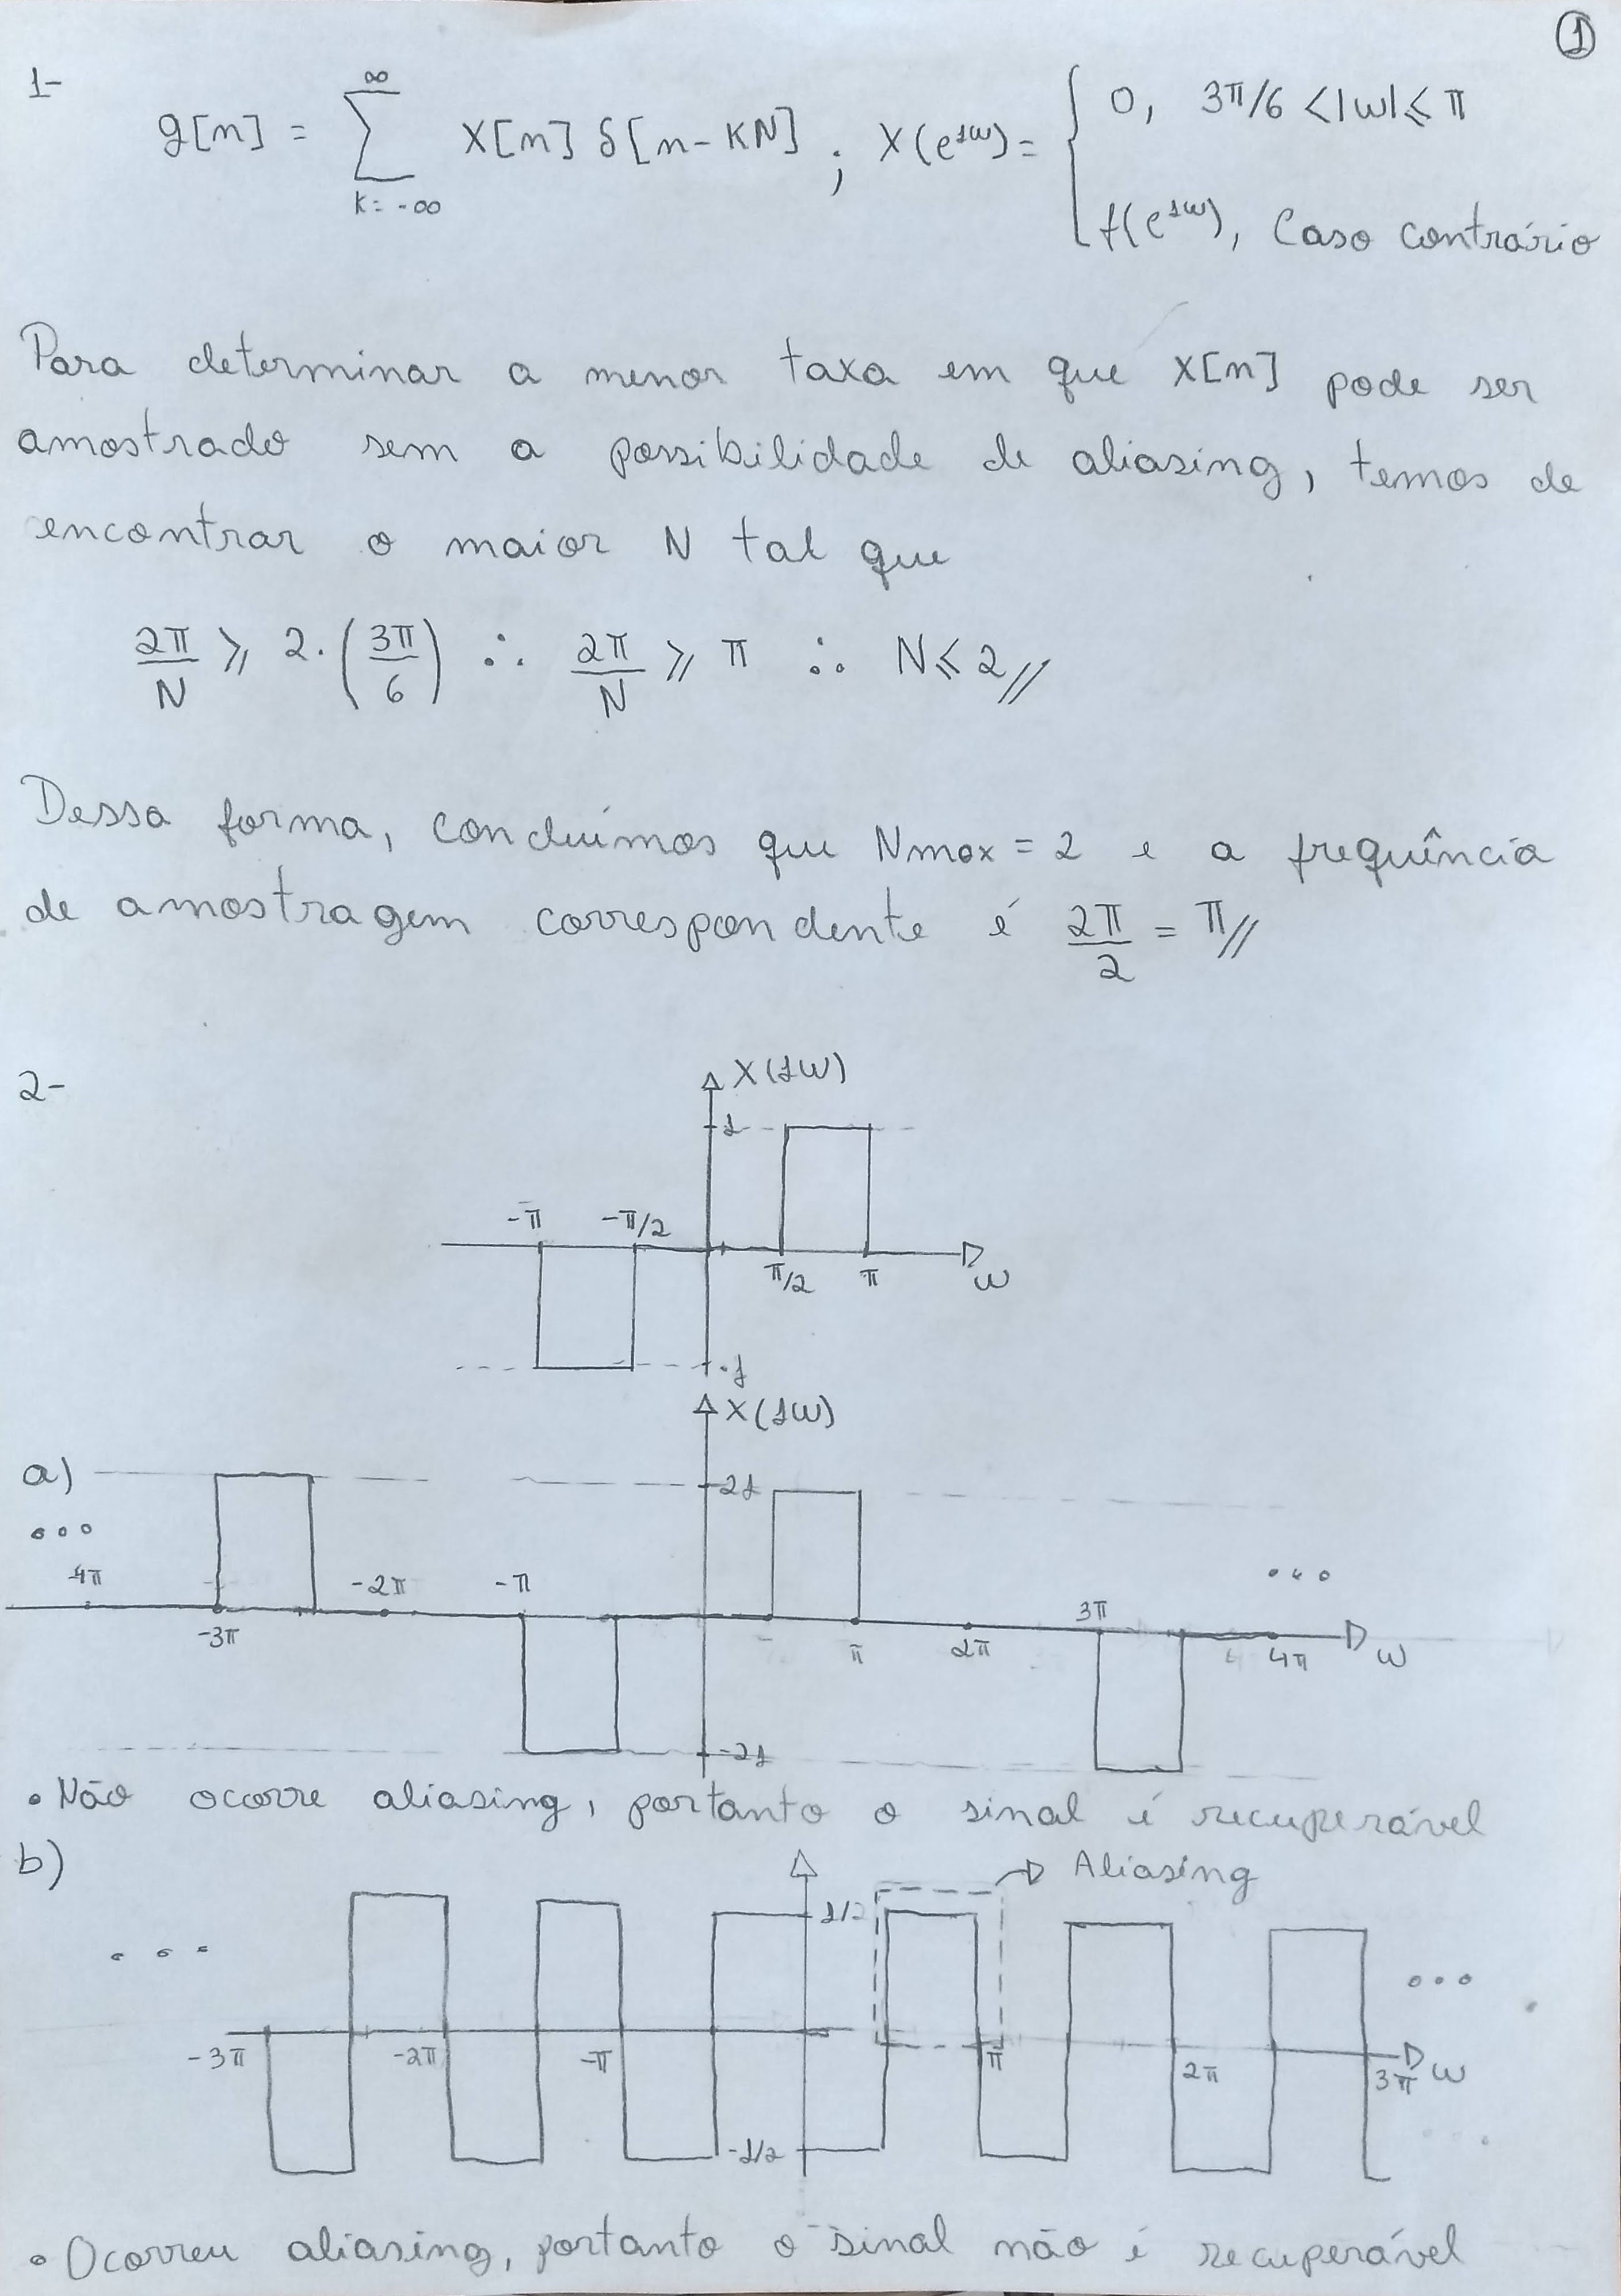 ①
1-
g[n] = ∞ Σ k=-∞ x[n] δ[n-KN] ; X(e^jω) = { 0, 3π/6 < |ω| ≤ π
f(e^jω), Caso contrário
Para determinar a menor taxa em que x[n] pode ser
amostrado sem a possibilidade de aliasing, temos de
encontrar o maior N tal que
2π/N ≥ 2·(3π/6) ∴ 2π/N ≥ π ∴ N ≤ 2//
Dessa forma, concluímos que Nmax = 2 e a frequência
de amostragem correspondente é 2π/2 = π//
2-
X(jω)
j
-π -π/2
π/2 π ω
-j
X(jω)
a)
2j
-4π -2π -π 3π
-3π π 2π 4π ω
-2j
• Não ocorre aliasing, portanto o sinal é recuperável
b)
Aliasing
j/2
-3π -2π -π π 2π 3π ω
-j/2
• Ocorreu aliasing, portanto o sinal não é recuperável